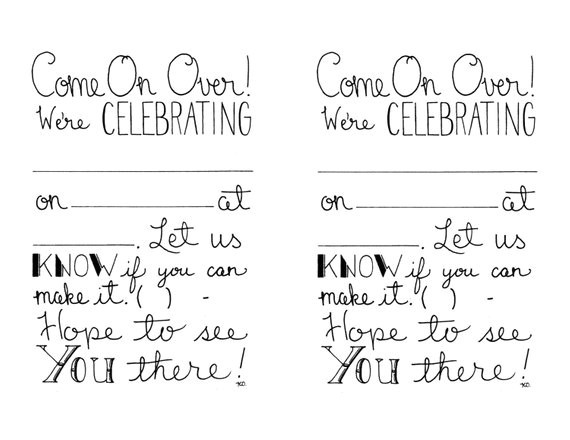 Come On Over!
We're CELEBRATING
on at
. Let us
KNOW if you can
make it. ( ) -
Hope to see
YOU there!
KO.
Come On Over!
We're CELEBRATING
on at
. Let us
KNOW if you can
make it. ( ) -
Hope to see
YOU there!
KO.